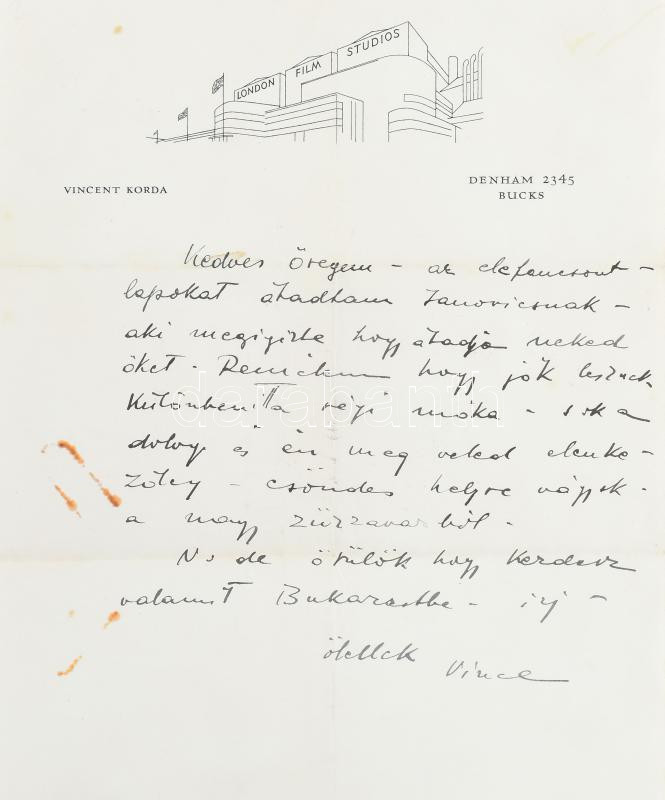 LONDON FILM STUDIOS
VINCENT KORDA
DENHAM 2345
BUCKS
Kedves öregem – az elefancsont –
lapokat átadtam Janovicsnak –
aki megigirte hogy átadja neked
őket. Remélem hogy jók lesznek
Különben a régi móka – sok a
dolog és én meg veled
– csöndes helyre vágyok –
a nagy zürzavarból –
No de örülök hogy kerdesz
valamit Bukarestbe – irj –
ölellek
Vince
darabanth